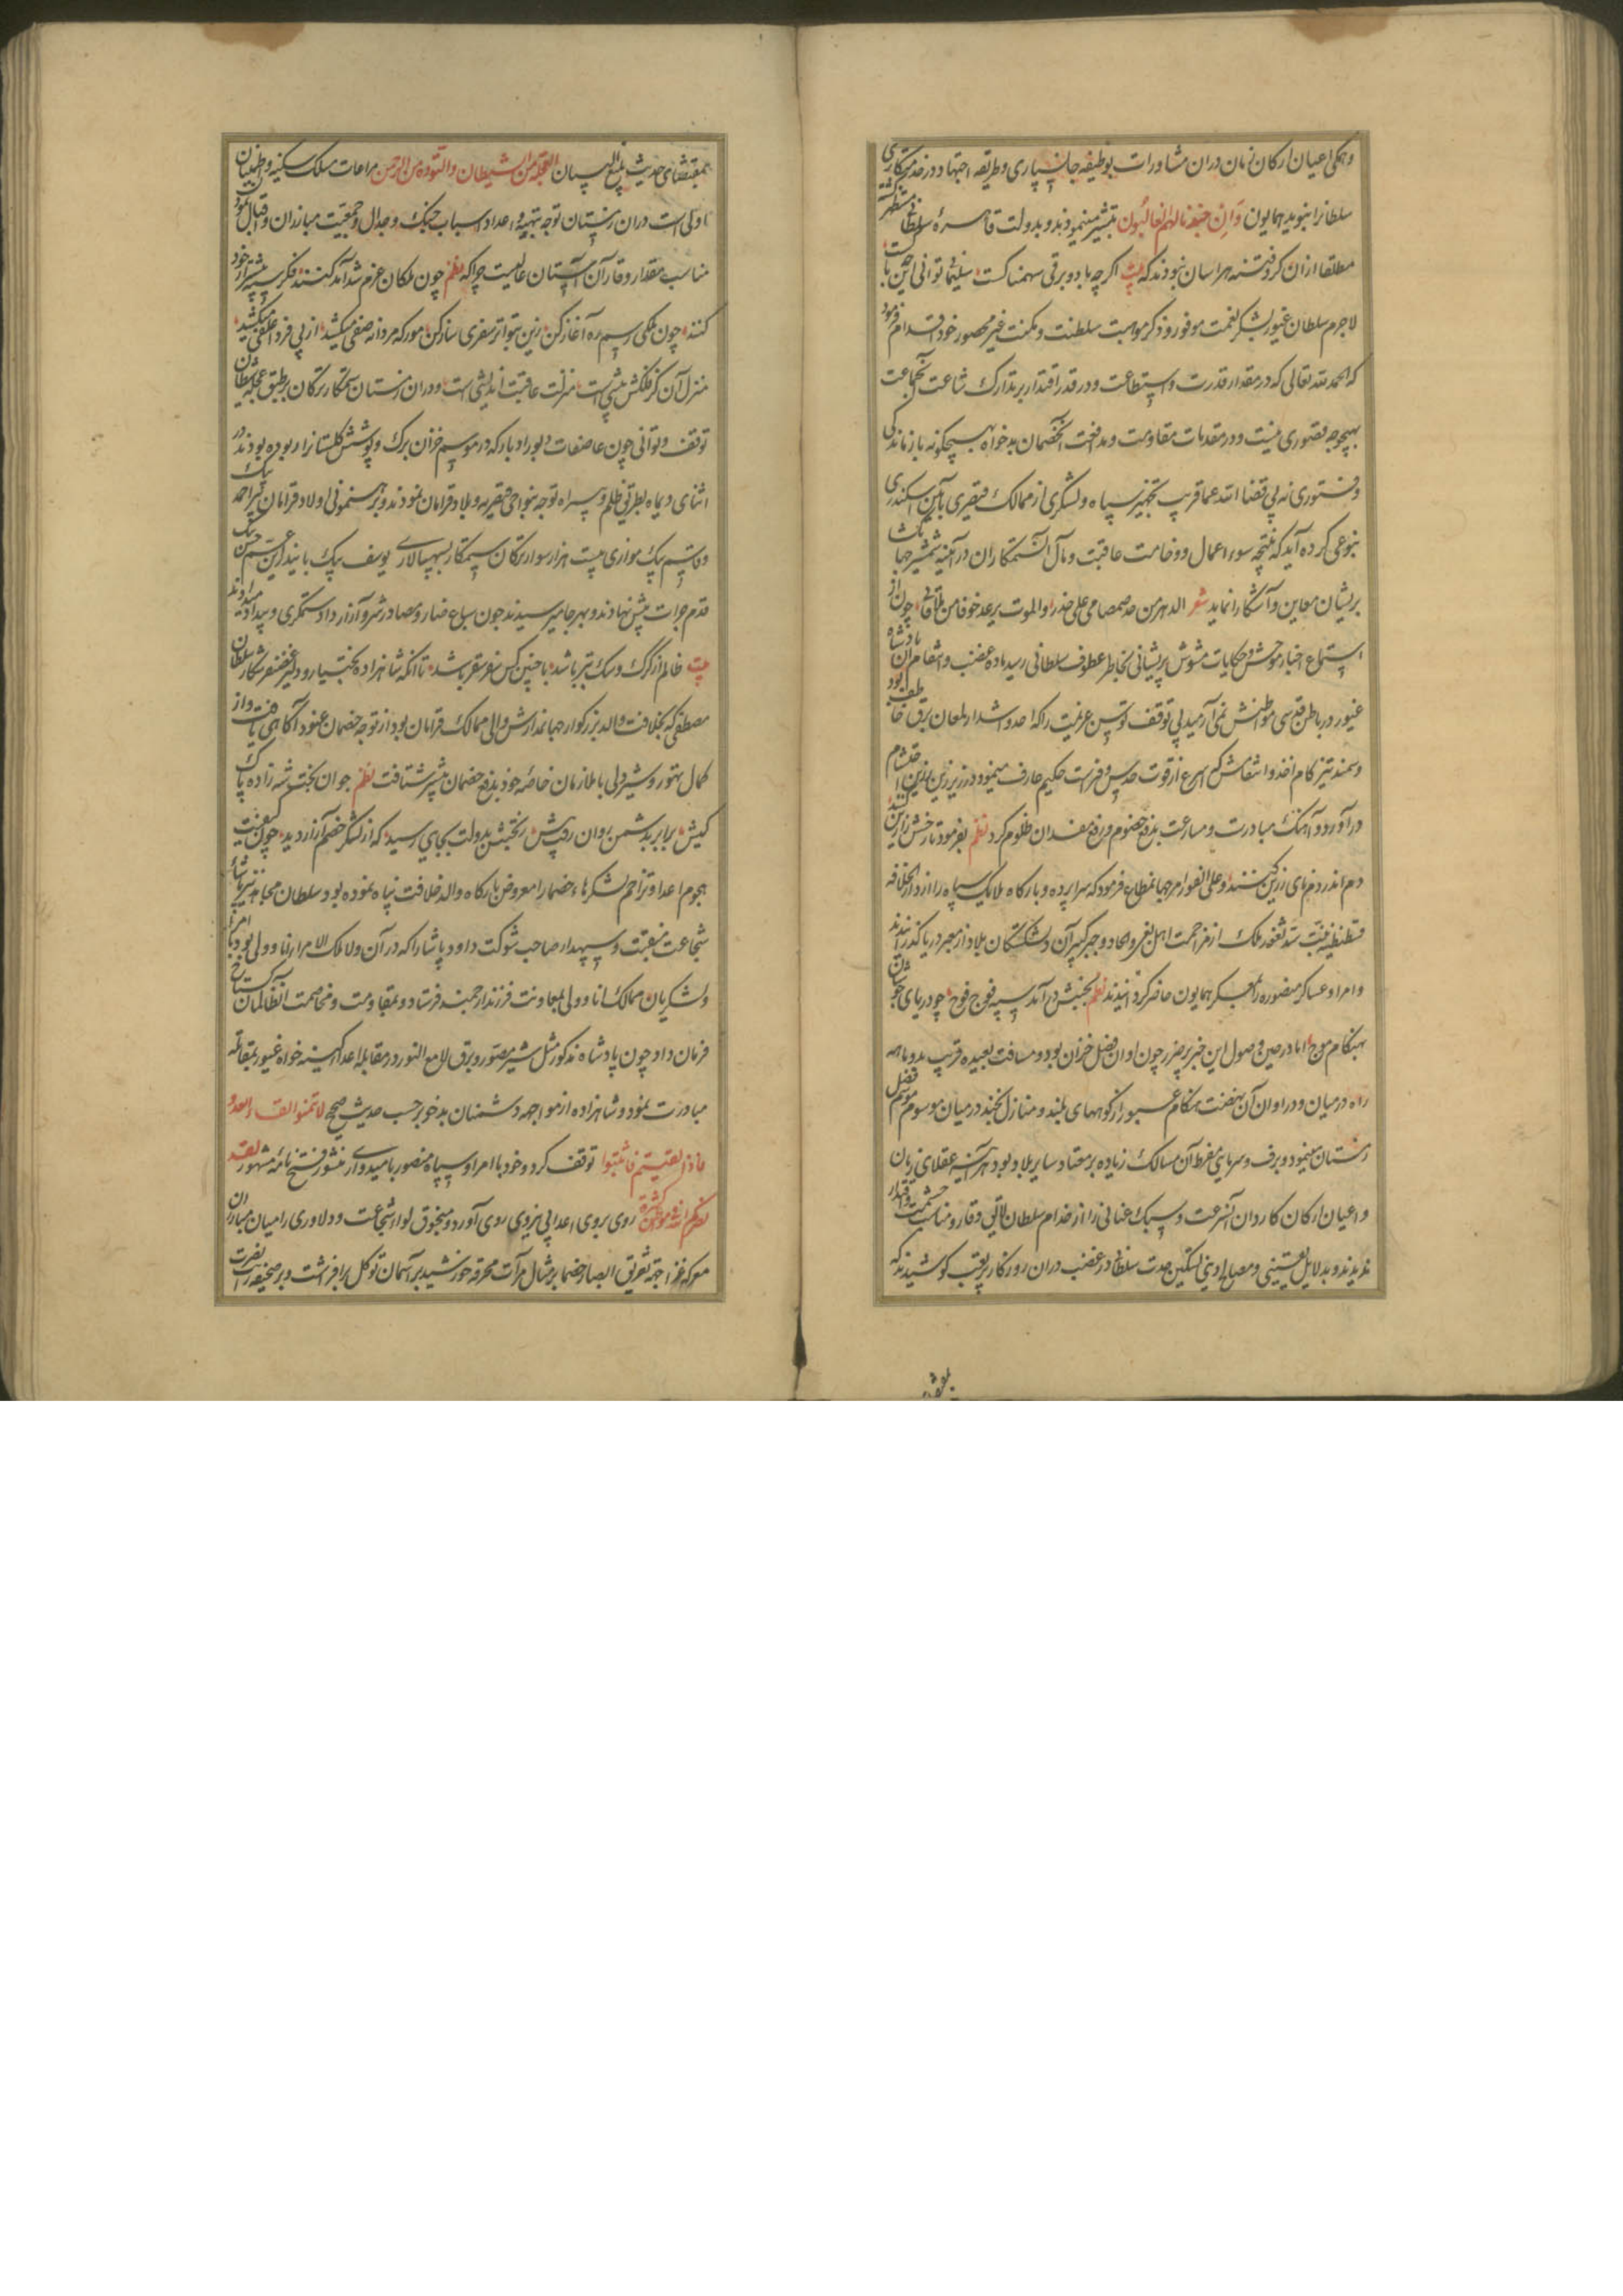 وهمگی اعیان ارکان زمان دران مشاورات بوظیفه جان سپاری و طریقه اجتهاد و رخدمتکاری
سلطانرا بنوید همایون وَاِنَّ جندنا لهم الغالبون تبشیر مینمودند و بدولت قاهره سلطانی مستظهر گشته
مطلقا ازان گرد فتنه هراسان نبودند که بیت اگرچه باد و برقی سهمناکست سلیمانی
لاجرم سلطان غیور بشکر نعمت موفور و ذکر موهبت سلطنت و مکنت غیر محصور خود اقدام فرمود
که الحمد لله تعالی که در مقدار قدرت و استطاعت و در قدر اقتدار بر تدارک شناعت آنجماعت
بهیچوجه قصوری نیست و در مقدمات مقاومت و مدافعت آنخصمان بدخواه بهیچگونه بازماندگی
و فتوری نه پی قضا الله عما قریب تجهیز سپاه و لشگری از ممالک قیصری بآیین اسکندری
بنوعی کرده آید که نتیجه سوء اعمال و وخامت عاقبت و مآل آن ستمکاران در آیینه شمشیر
بریشان معاین و آشکارا نماید شعر الدهر من صمصامی علی حذر والموت یرعد خوفا من چون از
استماع اخبار موحش و حکایات مشوش پریشانی بخاطر عطوف سلطانی رسید ماده غضب و انتقام آن پادشاه
غیور در باطن قدسی مواطنش نمی آرمید بی توقف توسن عزیمت را که
و سمند تیز کام اخذ و انتقامش که اسرع از قوت حدس و فراست حکیم عارف مینمود در زیر زین
در آورد و آهنگ مبادرت و مسارعت بدفع خصوم و رفع مفسدان ظلوم کرد نظم بفرمود تا رخش
دم اندر دم نای زرین کنند و علی الفور امر جهانمطاع فرمود که سراپرده و بارگاه ملایک سپاه را از دارالخلافه
قسطنطنیه بنیت سد ثغور ملک از مزاحمت اهل بغی و الحاد و جبر کسر آن دلشکستگان بلاد از معبر دریا گذرانیدند
و امرا و عساکر منصوره را بعسکر همایون حاضر گردانیدند نظم بجنبش در آمد سپه فوج فوج چو دریای جوشان
بهنگام موج اما در حین وصول این خبر پر ضرر چون اوان فصل خزان بود و مسافت بعیده قریب بدو ماهه
راه در میان و در اوان آن نهضت هنگام عبور از کوههای بلند و منازل نجند در میان موسوم موسم فصل
زمستان مینمود و برف و سرمای مفرط آن مسالک زیاده بر معتاد سایر بلاد بود هر آینه عقلای زمان
و اعیان ارکان کاردان آن سرعت و سبک عنانی را از خدام سلطان لایق وقار و مناسب حشمت و اقتدار
ندیدند و بدلایل یقینی و مصالح دینی تسکین حدت سلطانی در غضب دران روزگار پر تعب کوشیدند که
بمقتضای حدیث العجله من الشیطان والتؤدة من الرحمن مراعات مسلک سکینه و اطمینان
اولی است دران زمستان توجه بتهیه و اعداد اسباب جنگ و جدال و جمعیت مبارزان
مناسب مقدار وقار آن آستان عالیست چرا که نظم چون ملکان عزم شدآمد کنند فکر سپه بیشتر از خود
کنند چون ملکی رسم ره آغاز کن زین بتواتر سفری ساز کن مور که مردانه صفی میکشد از پی فردا علفی میکشد
منزل آن کز فلکش بیشی است منزلت عاقبت اندیشی است و دران زمستان ستمکار ترکان
توقف و توانی چون عاصفات دبور ادبار که در موسم خزان برگ و پوشش گلستانرا ربوده بودند در
اثنای دیماه بطریق ظلم و بیراه توجه بنواحی قیصریه و بلاد قرامان نمودند و برهنمونی اولاد قرامان پیر احمد بیک
و قاسم بیک موازی بیست هزار سوار ترکان ستمکار بسپهسالاری یوسف بیک بایندر
قدم جرات پیش نهادند و بهر جا میرسیدند چون سباع ضار و مصادر شر و آزار داد ستمگری و بیداد میدادند
بیت ظالم از گرگ و سگ بتر باشد با چنین کس سفر سقر باشد تا آنکه شاهزاده بختیار و دلیر غضنفر شکار سلطان
مصطفی که بخلافت والد بزرگوار جهاندارش والی ممالک قرامان بود از توجه خصمان عنود آگاهی یافت و از
کمال تهور و شیردلی با ملازمان خاصه خود بدفع خصمان پیشتر شتافت نظم جوان بخت شه زاده پاک
کیش برابر بدشمن روان رفت پیش ز بختش بدولت بجایی رسید که از لشگر خصم آزار دید چون کیفیت
هجوم اعدا و تزاحم لشکرهاء خصما را معروض بارگاه والد خلافت پناه نموده بود سلطان مجاهد
شجاعت منقبت و سپهدار صاحب شوکت داود پاشا را که در آن ولا ملک الامراء اناطولی بود با امرا
و لشکریان ممالک اناطولی بمعاونت فرزند ارجمند فرستاد و بمقاومت و مخاصمت آن ظالمان
فرمان داد چون پادشاه مذکور مثل شیر مصور و برق لامع النور در مقابله اعدا کینه خواه غیور بمقاتله
مبادرت نمود و شاهزاده از مواجهه دشمنان بدخو بر حسب حدیث صحیح لا تمنوا لقاء العدو
فاذا لقیتم فاثبتوا توقف کرد و خود با امرا و سپاه منصور بامیدواری منشور فتح نامه مشهور لقد
نصرکم الله فی مواطن کثیرة روی بروی اعدا بی نیروی روی آورد و سنجوق لواء شجاعت و دلاوری را میان مبارزان
معرکه غزا جهة تفریق ابصار خصما بر مثال مرآت محرقه خورشید بر آسمان توکل برافراشت و بر صحیفه